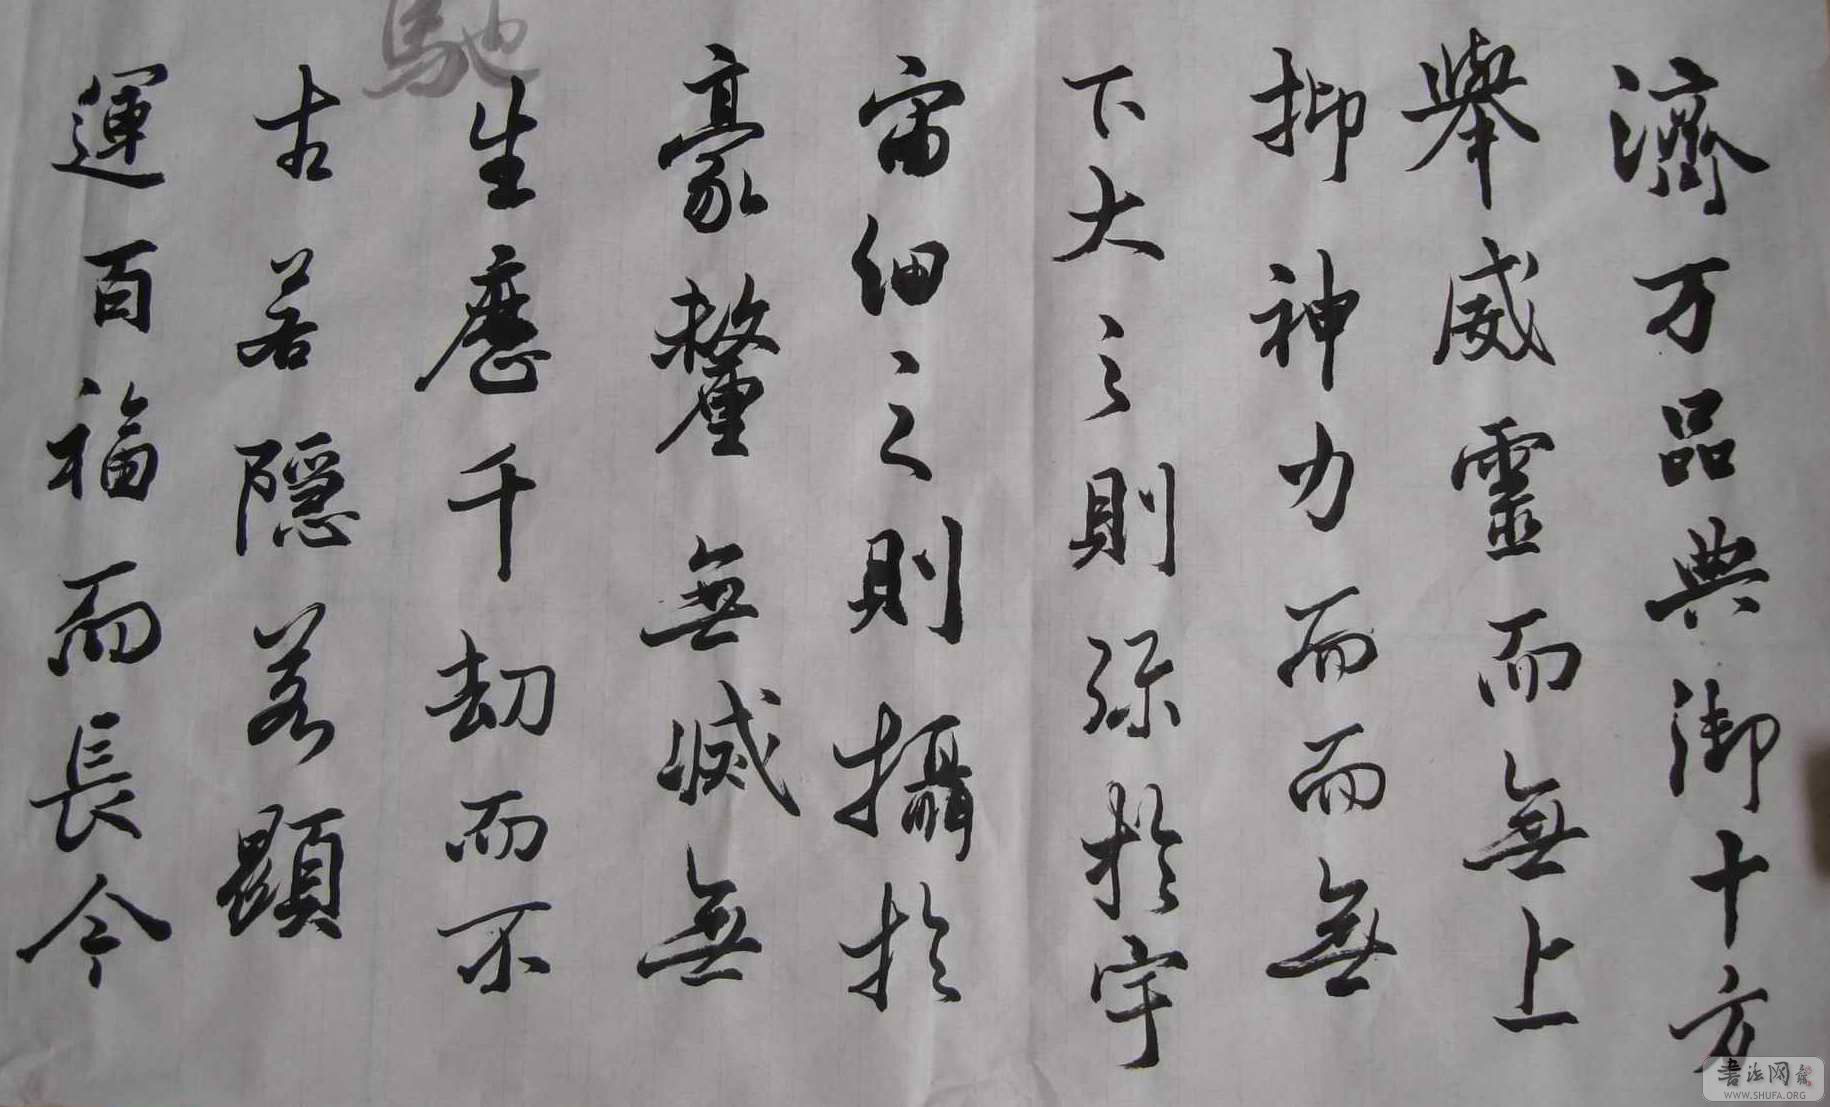 濟万品典御十方
舉威靈而無上
抑神力而而無
下大之則弥於宇
宙細之則攝於
豪釐無滅無
生歷千劫而不
古若隱若顯
運百福而長今
馳
書法网
WWW.SHUFA.ORG